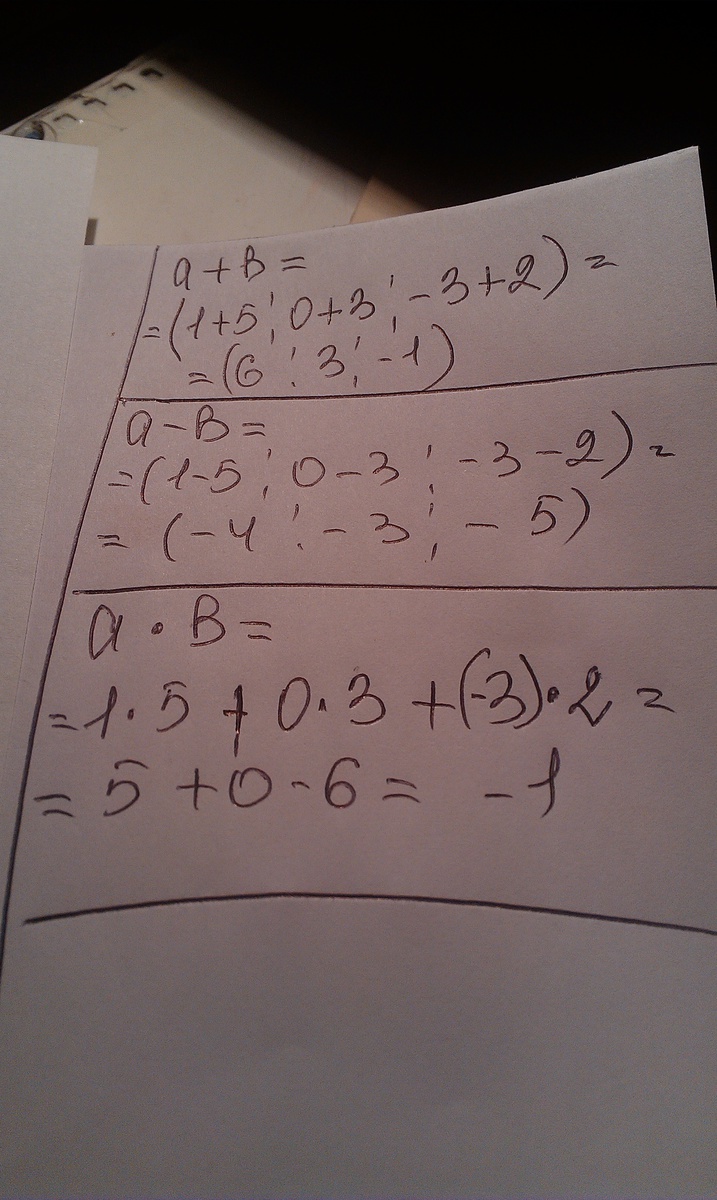 a+B=
=(1+5; 0+3; -3+2)=
=(6; 3; -1)
a-B=
=(1-5; 0-3; -3-2)=
=(-4; -3; -5)
a·B=
=1·5+0·3+(-3)·2=
=5+0-6= -1